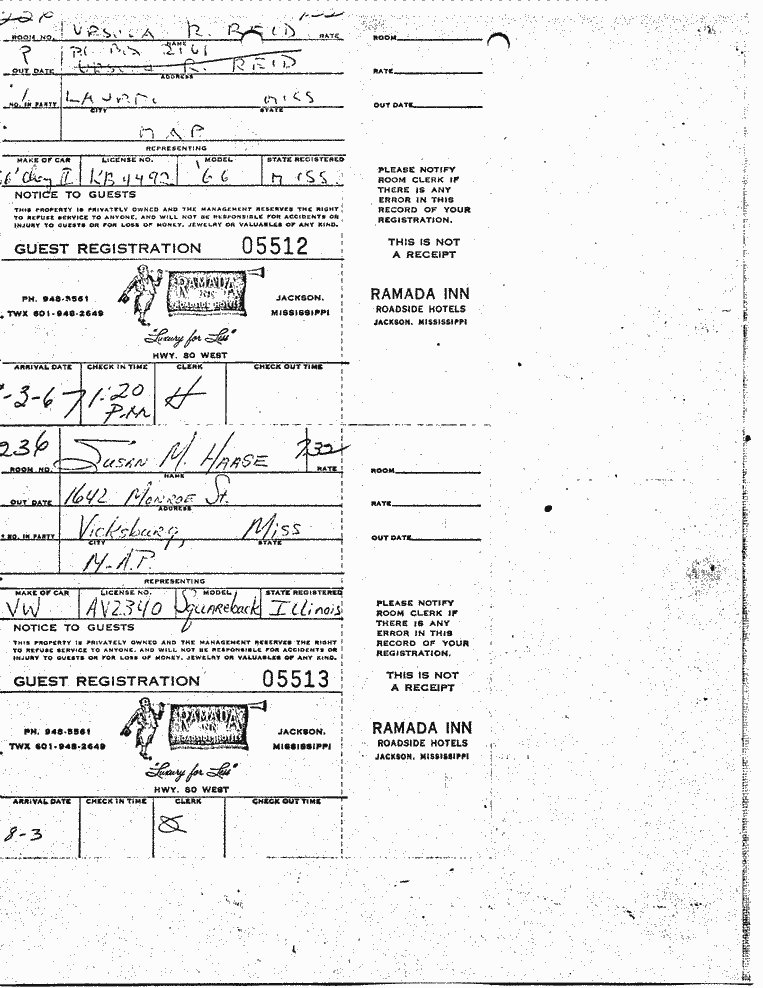 URSULA R. REID
ROOM NO. NAME RATE
P.O. Box 2161
URSULA R. REID
OUT DATE ADDRESS
1 LAUREL MISS
NO. IN PARTY CITY STATE
M A P
REPRESENTING
MAKE OF CAR LICENSE NO. MODEL STATE REGISTERED
Chevy II KB 4492 '66 MISS.
NOTICE TO GUESTS
THIS PROPERTY IS PRIVATELY OWNED AND THE MANAGEMENT RESERVES THE RIGHT
TO REFUSE SERVICE TO ANYONE, AND WILL NOT BE RESPONSIBLE FOR ACCIDENTS OR
INJURY TO GUESTS OR FOR LOSS OF MONEY, JEWELRY OR VALUABLES OF ANY KIND.
GUEST REGISTRATION 05512
RAMADA
INN
ROADSIDE HOTELS
PH. 948-5561
TWX 601-948-2649
JACKSON,
MISSISSIPPI
"Luxury for Less"
HWY. 80 WEST
ARRIVAL DATE CHECK IN TIME CLERK CHECK OUT TIME
-3-67 1:20 H
P.M.
ROOM
RATE
OUT DATE
PLEASE NOTIFY
ROOM CLERK IF
THERE IS ANY
ERROR IN THIS
RECORD OF YOUR
REGISTRATION.
THIS IS NOT
A RECEIPT
RAMADA INN
ROADSIDE HOTELS
JACKSON, MISSISSIPPI
236 SUSAN M. HAASE 732
ROOM NO. NAME RATE
1642 MONROE St.
OUT DATE ADDRESS
Vicksburg, Miss
NO. IN PARTY CITY STATE
M.A.P.
REPRESENTING
MAKE OF CAR LICENSE NO. MODEL STATE REGISTERED
VW AV2340 Squareback Illinois
NOTICE TO GUESTS
THIS PROPERTY IS PRIVATELY OWNED AND THE MANAGEMENT RESERVES THE RIGHT
TO REFUSE SERVICE TO ANYONE, AND WILL NOT BE RESPONSIBLE FOR ACCIDENTS OR
INJURY TO GUESTS OR FOR LOSS OF MONEY, JEWELRY OR VALUABLES OF ANY KIND.
GUEST REGISTRATION 05513
RAMADA
INN
ROADSIDE HOTELS
PH. 948-5561
TWX 601-948-2649
JACKSON,
MISSISSIPPI
"Luxury for Less"
HWY. 80 WEST
ARRIVAL DATE CHECK IN TIME CLERK CHECK OUT TIME
8-3
ROOM
RATE
OUT DATE
PLEASE NOTIFY
ROOM CLERK IF
THERE IS ANY
ERROR IN THIS
RECORD OF YOUR
REGISTRATION.
THIS IS NOT
A RECEIPT
RAMADA INN
ROADSIDE HOTELS
JACKSON, MISSISSIPPI